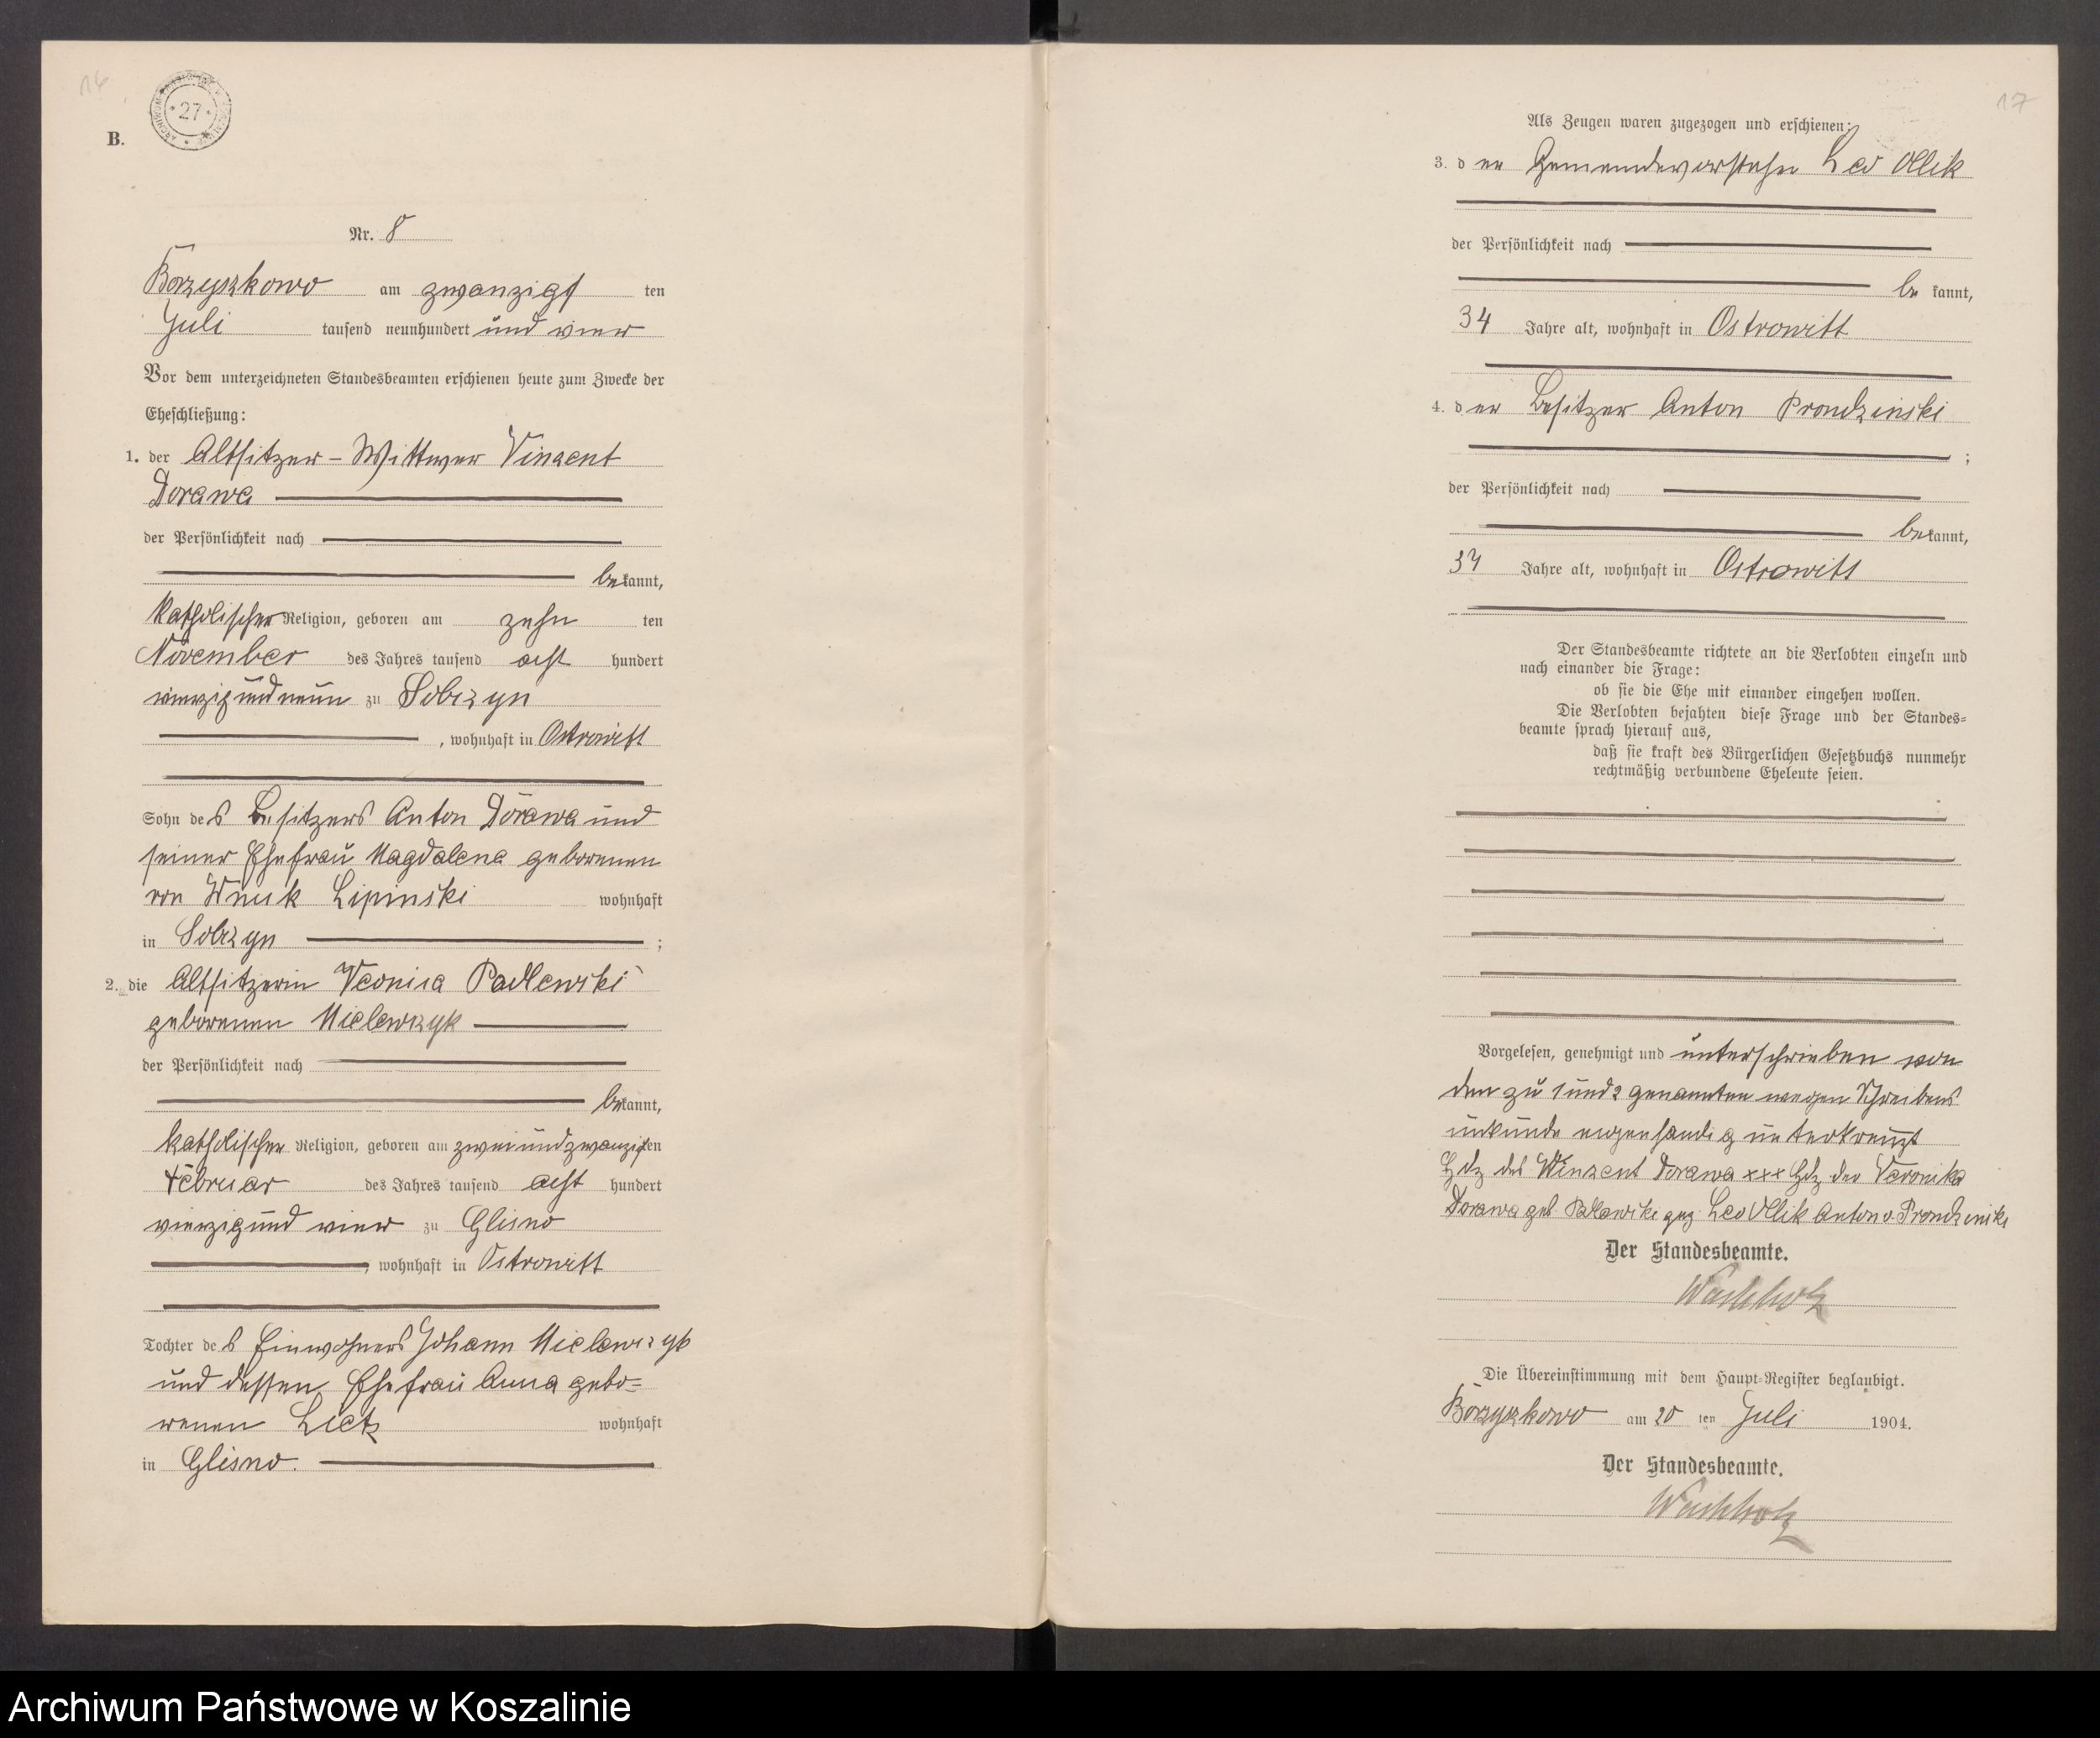 14
27
B.
Nr. 8
Borzyszkowo am zwanzigsten
Juli tausend neunhundert und vier
Vor dem unterzeichneten Standesbeamten erschienen heute zum Zwecke der
Eheschließung:
1. der Altsitzer-Wittwer Vinzent
Dorawa
der Persönlichkeit nach
bekannt,
katholischer Religion, geboren am zehn ten
November des Jahres tausend acht hundert
vierzig und neun zu Sobczyn
, wohnhaft in Ostrowitt
Sohn des Besitzers Anton Dorawa und
seiner Ehefrau Magdalena geborenen
von Wnuk Lipinski wohnhaft
in Sobczyn ;
2. die Altsitzerin Veonica Padlewski
geborenen Mielewczyk
der Persönlichkeit nach
bekannt,
katholischer Religion, geboren am zweiundzwanzigsten
Februar des Jahres tausend acht hundert
vierzig und vier zu Glisno
, wohnhaft in Ostrowitt
Tochter des Einwohners Johann Mielewczyk
und dessen Ehefrau Anna gebo=
renen Lietz wohnhaft
in Glisno.
17
Als Zeugen waren zugezogen und erschienen:
3. der Gemeindevorsteher Leo Ollik
der Persönlichkeit nach
bekannt,
34 Jahre alt, wohnhaft in Ostrowitt
4. der Besitzer Anton Prondzinski
;
der Persönlichkeit nach
bekannt,
34 Jahre alt, wohnhaft in Ostrowitt
Der Standesbeamte richtete an die Verlobten einzeln und
nach einander die Frage:
ob sie die Ehe mit einander eingehen wollen.
Die Verlobten bejahten diese Frage und der Standes=
beamte sprach hierauf aus,
daß sie kraft des Bürgerlichen Gesetzbuchs nunmehr
rechtmäßig verbundene Eheleute seien.
Vorgelesen, genehmigt und unterschrieben von
den zu 1 und 2 genannten wegen Schreibens
unkunde eigenhändig unterkreuzt
Hdz des Vinzent Dorawa xxx Hdz der Veronika
Dorawa geb Padlewski gez. Leo Ollik Anton v. Prondzinski
Der Standesbeamte.
Wachholz
Die Übereinstimmung mit dem Haupt-Register beglaubigt.
Borzyszkowo am 20 ten Juli 1904.
Der Standesbeamte.
Wachholz
Archiwum Państwowe w Koszalinie